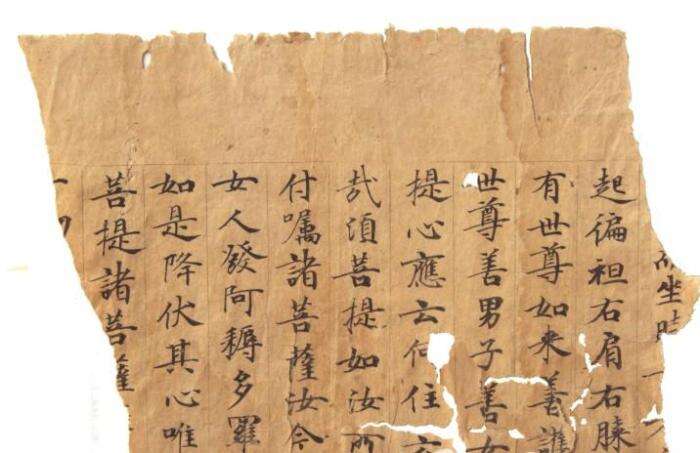 坐時
起徧袒右肩右膝
有世尊如来善護
世尊善男子善女
提心應云何住
哉須菩提如汝所
付嘱諸菩薩汝今
女人發阿耨多羅
如是降伏其心唯
菩提諸菩薩